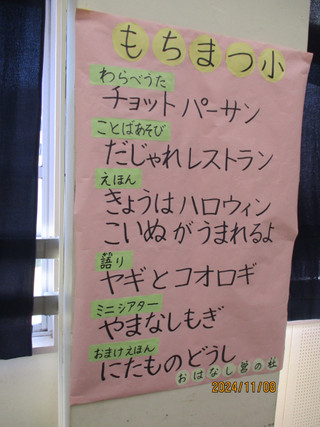 もちまつ小
わらべうた
チョットパーサン
ことばあそび
だじゃれレストラン
えほん
きょうはハロウィン
こいぬがうまれるよ
語り
ヤギとコオロギ
ミニシアター
やまなしもぎ
おまけえほん
にたものどうし
おはなし宮の杜
2024/11/08